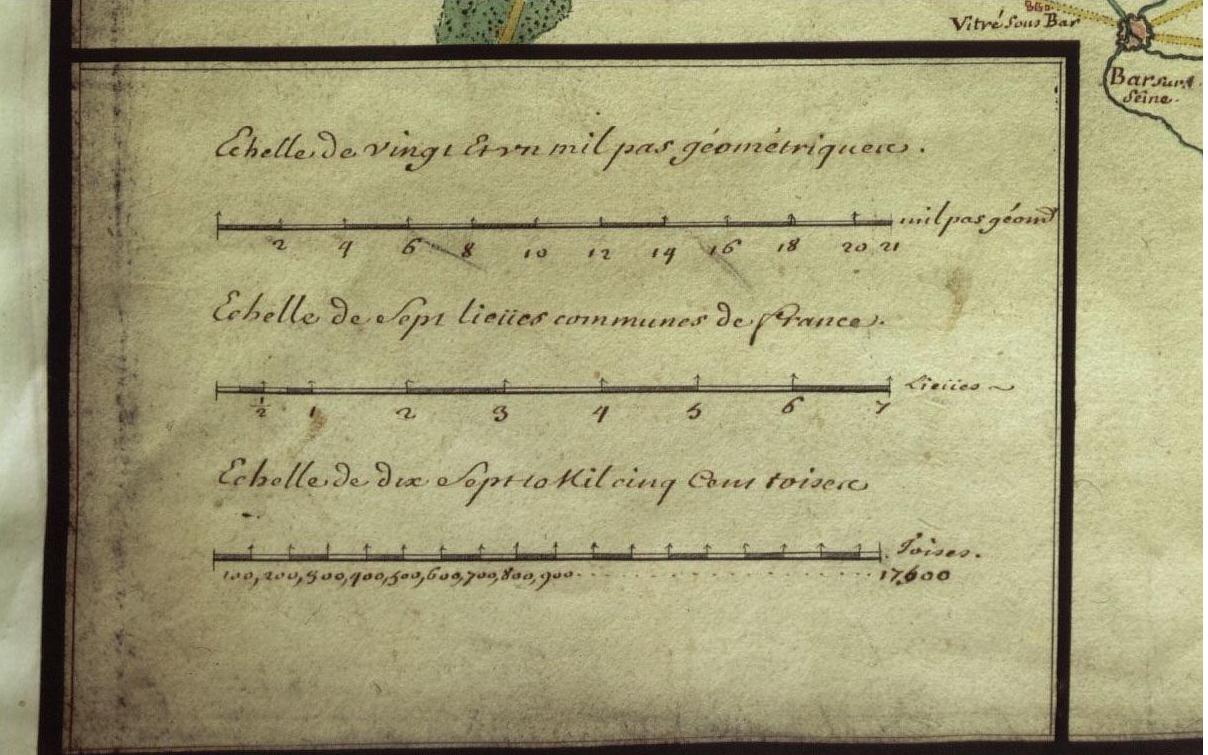 Vitré Sous Bar
Bar sur
Seine.
Echelle de vingt Et vn mil pas géométriques.
mil pas géom
2 4 6 8 10 12 14 16 18 20 21
Echelle de Sept lieües communes de france.
Lieües
1/2 1 2 3 4 5 6 7
Echelle de dix Sept Mil cinq Cent toises
Toises.
100,200,300,400,500,600,700,800,900 17,600